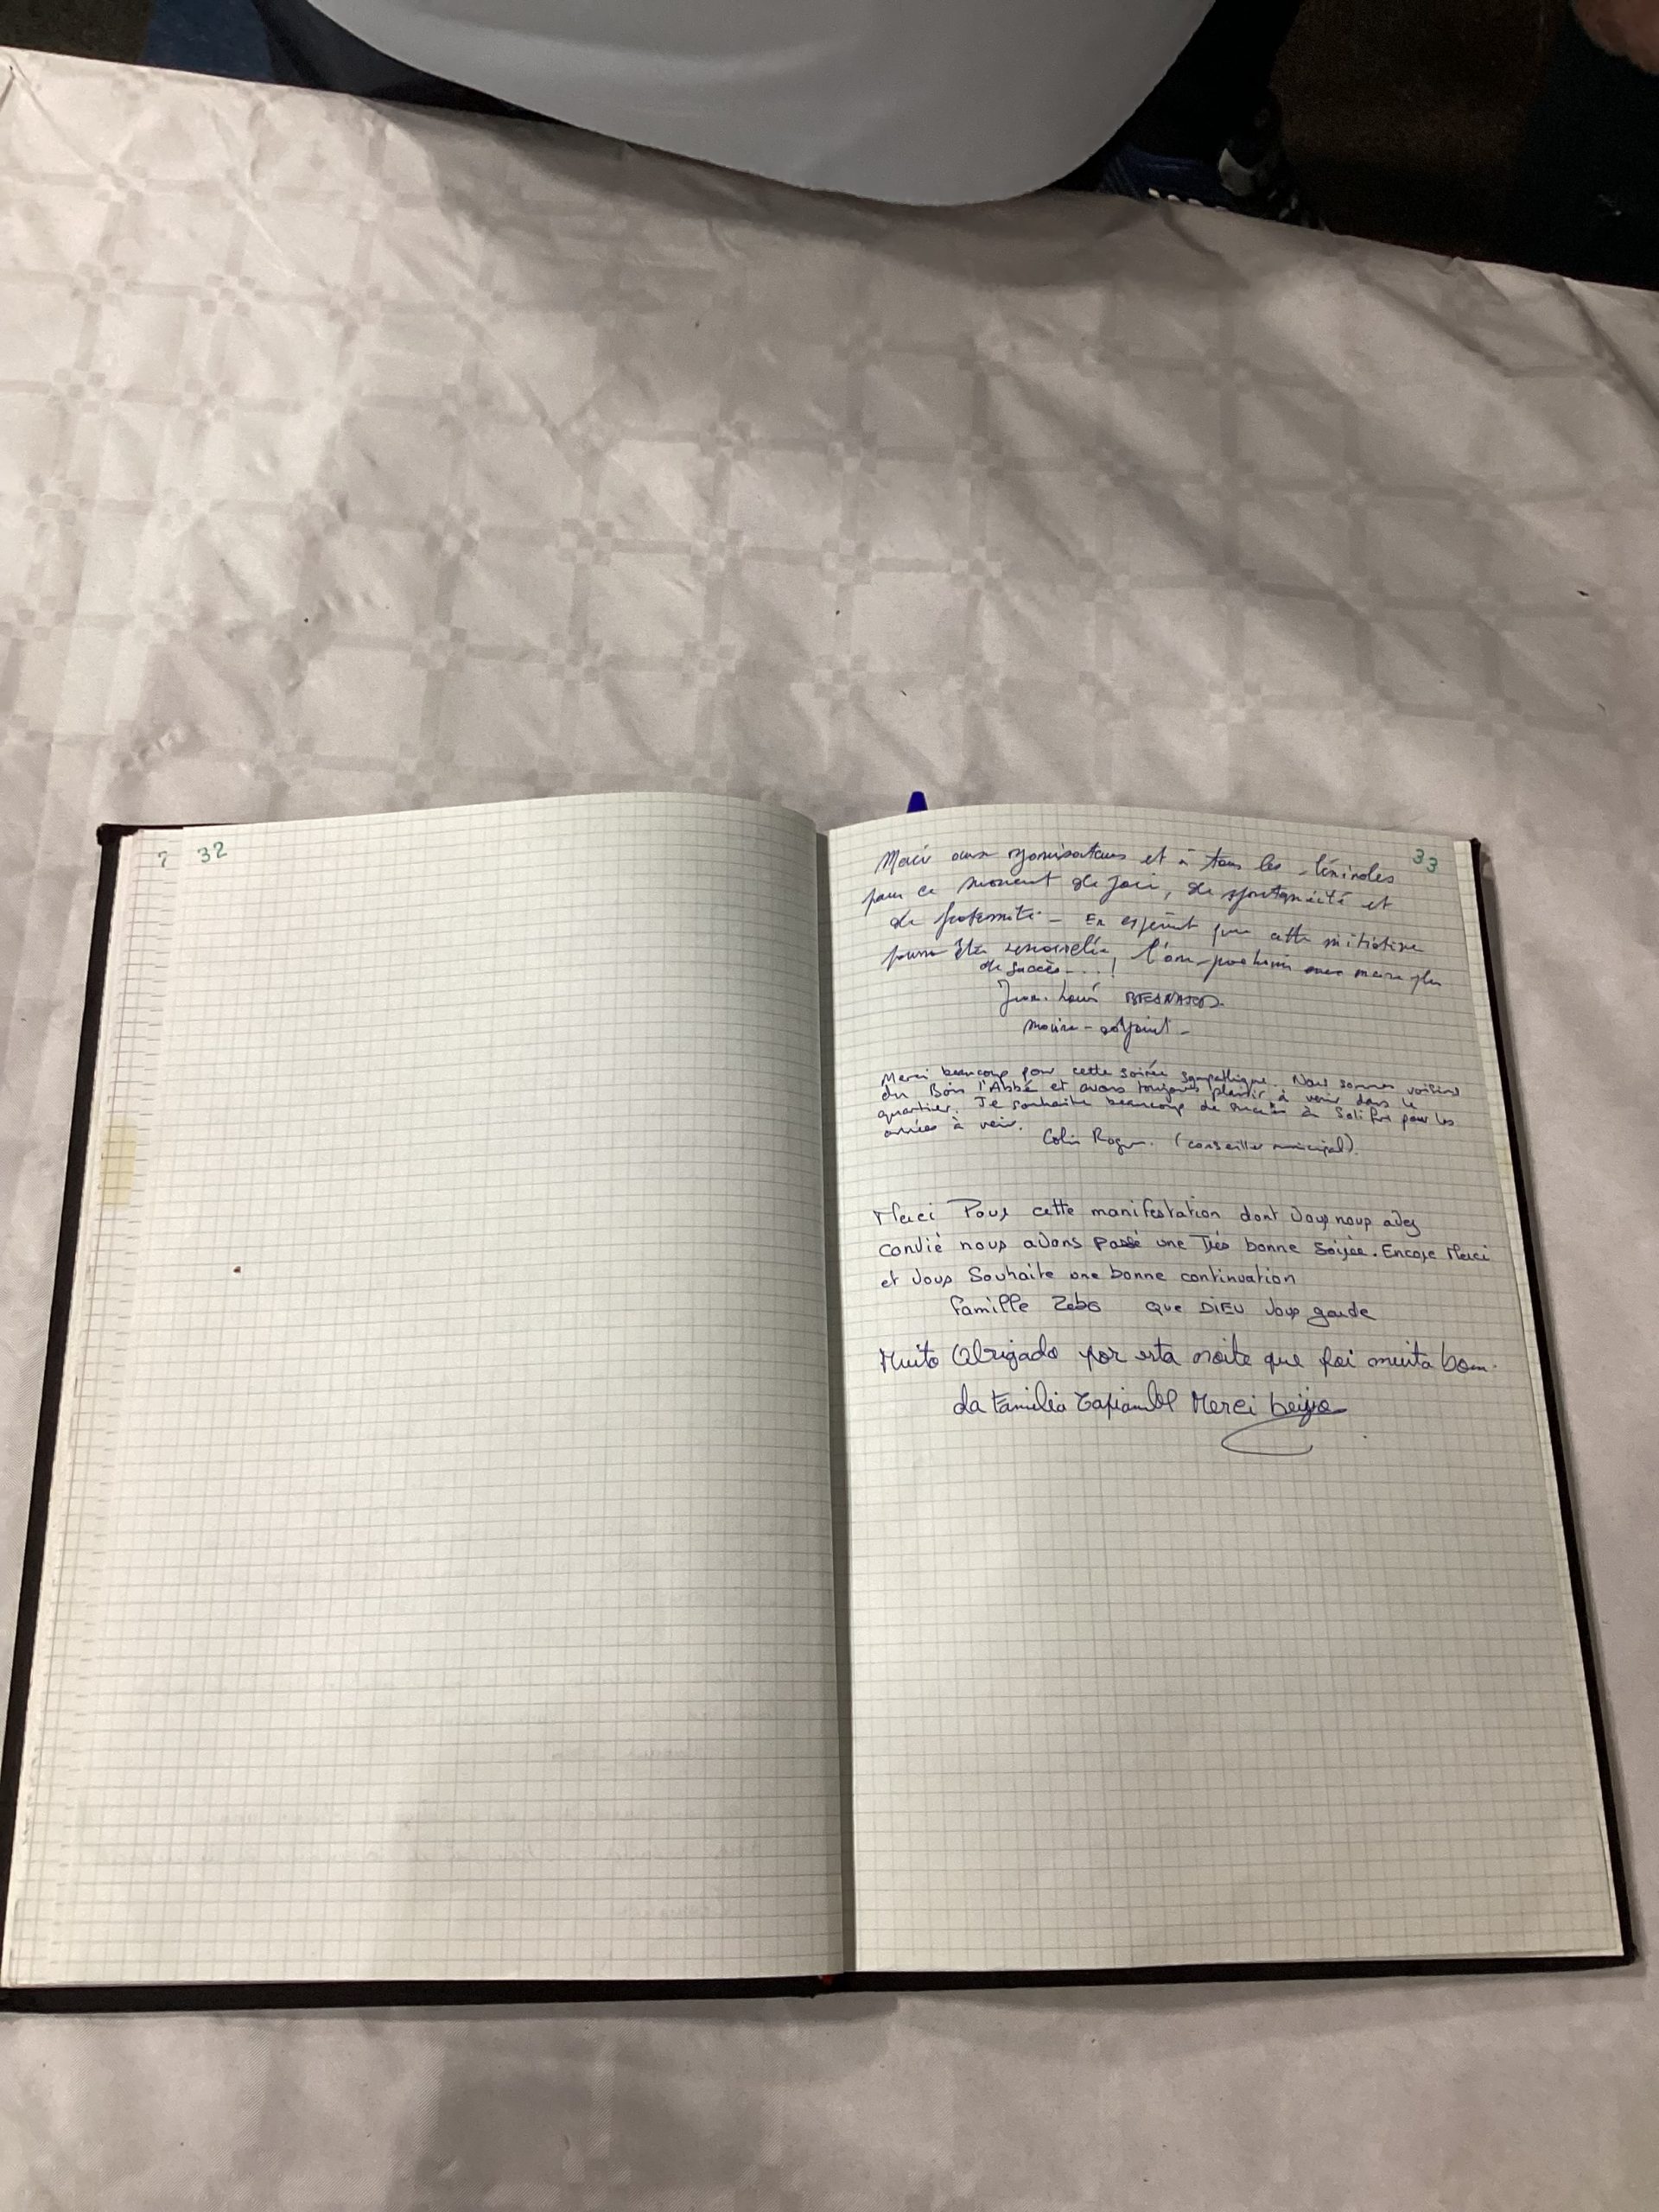 32
33
Merci aux organisateurs et à tous les bénévoles
pour ce moment de joie, de spontanéité et
de fraternité - En espérant que cette initiative
pourra être renouvelée, l'an prochain avec encore plus
de succès - . . !
Jean-Louis
maire-adjoint -
Merci beaucoup pour cette soirée sympathique. Nous sommes voisins
du Bois l'Abbé et avons toujours plaisir à venir dans le
quartier. Je souhaite beaucoup de succès à pour les
années à venir.
Colin (conseiller municipal).
Merci Pour cette manifestation dont Vous nous avez
convié nous avons Passé une Très bonne Soirée. Encore Merci
et Vous Souhaite une bonne continuation
famille Zebo Que DIEU Vous garde
Muito Obrigado por esta noite que foi muita bom.
da Familia Merci beijo